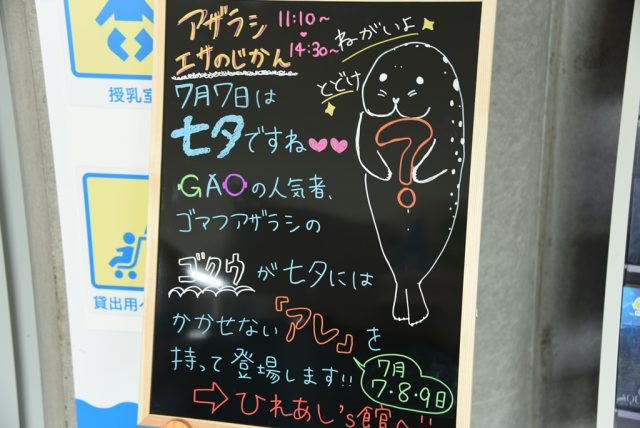 アザラシ 11:10~
エサのじかん 14:30~
ねがいよ
とどけ
7月7日は
七夕ですね
GAOの人気者、
ゴマフアザラシの
ゴクウが七夕には
かかせない『アレ』を
持って登場します!!
7月
7・8・9日
⇒ひれあし's館へ!!
?
授乳室
貸出用ベ